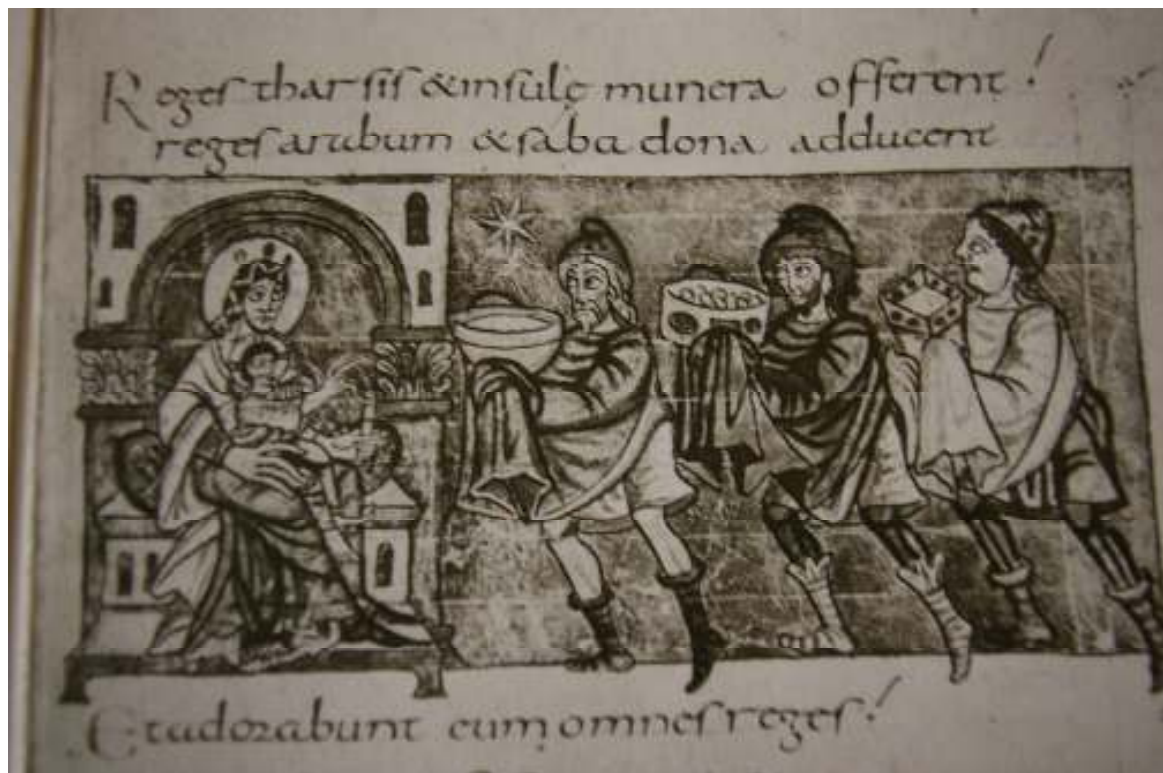 Reges tharsis & insulę munera offerent!
reges arabum & saba dona adducent
Et adorabunt eum omnes reges!